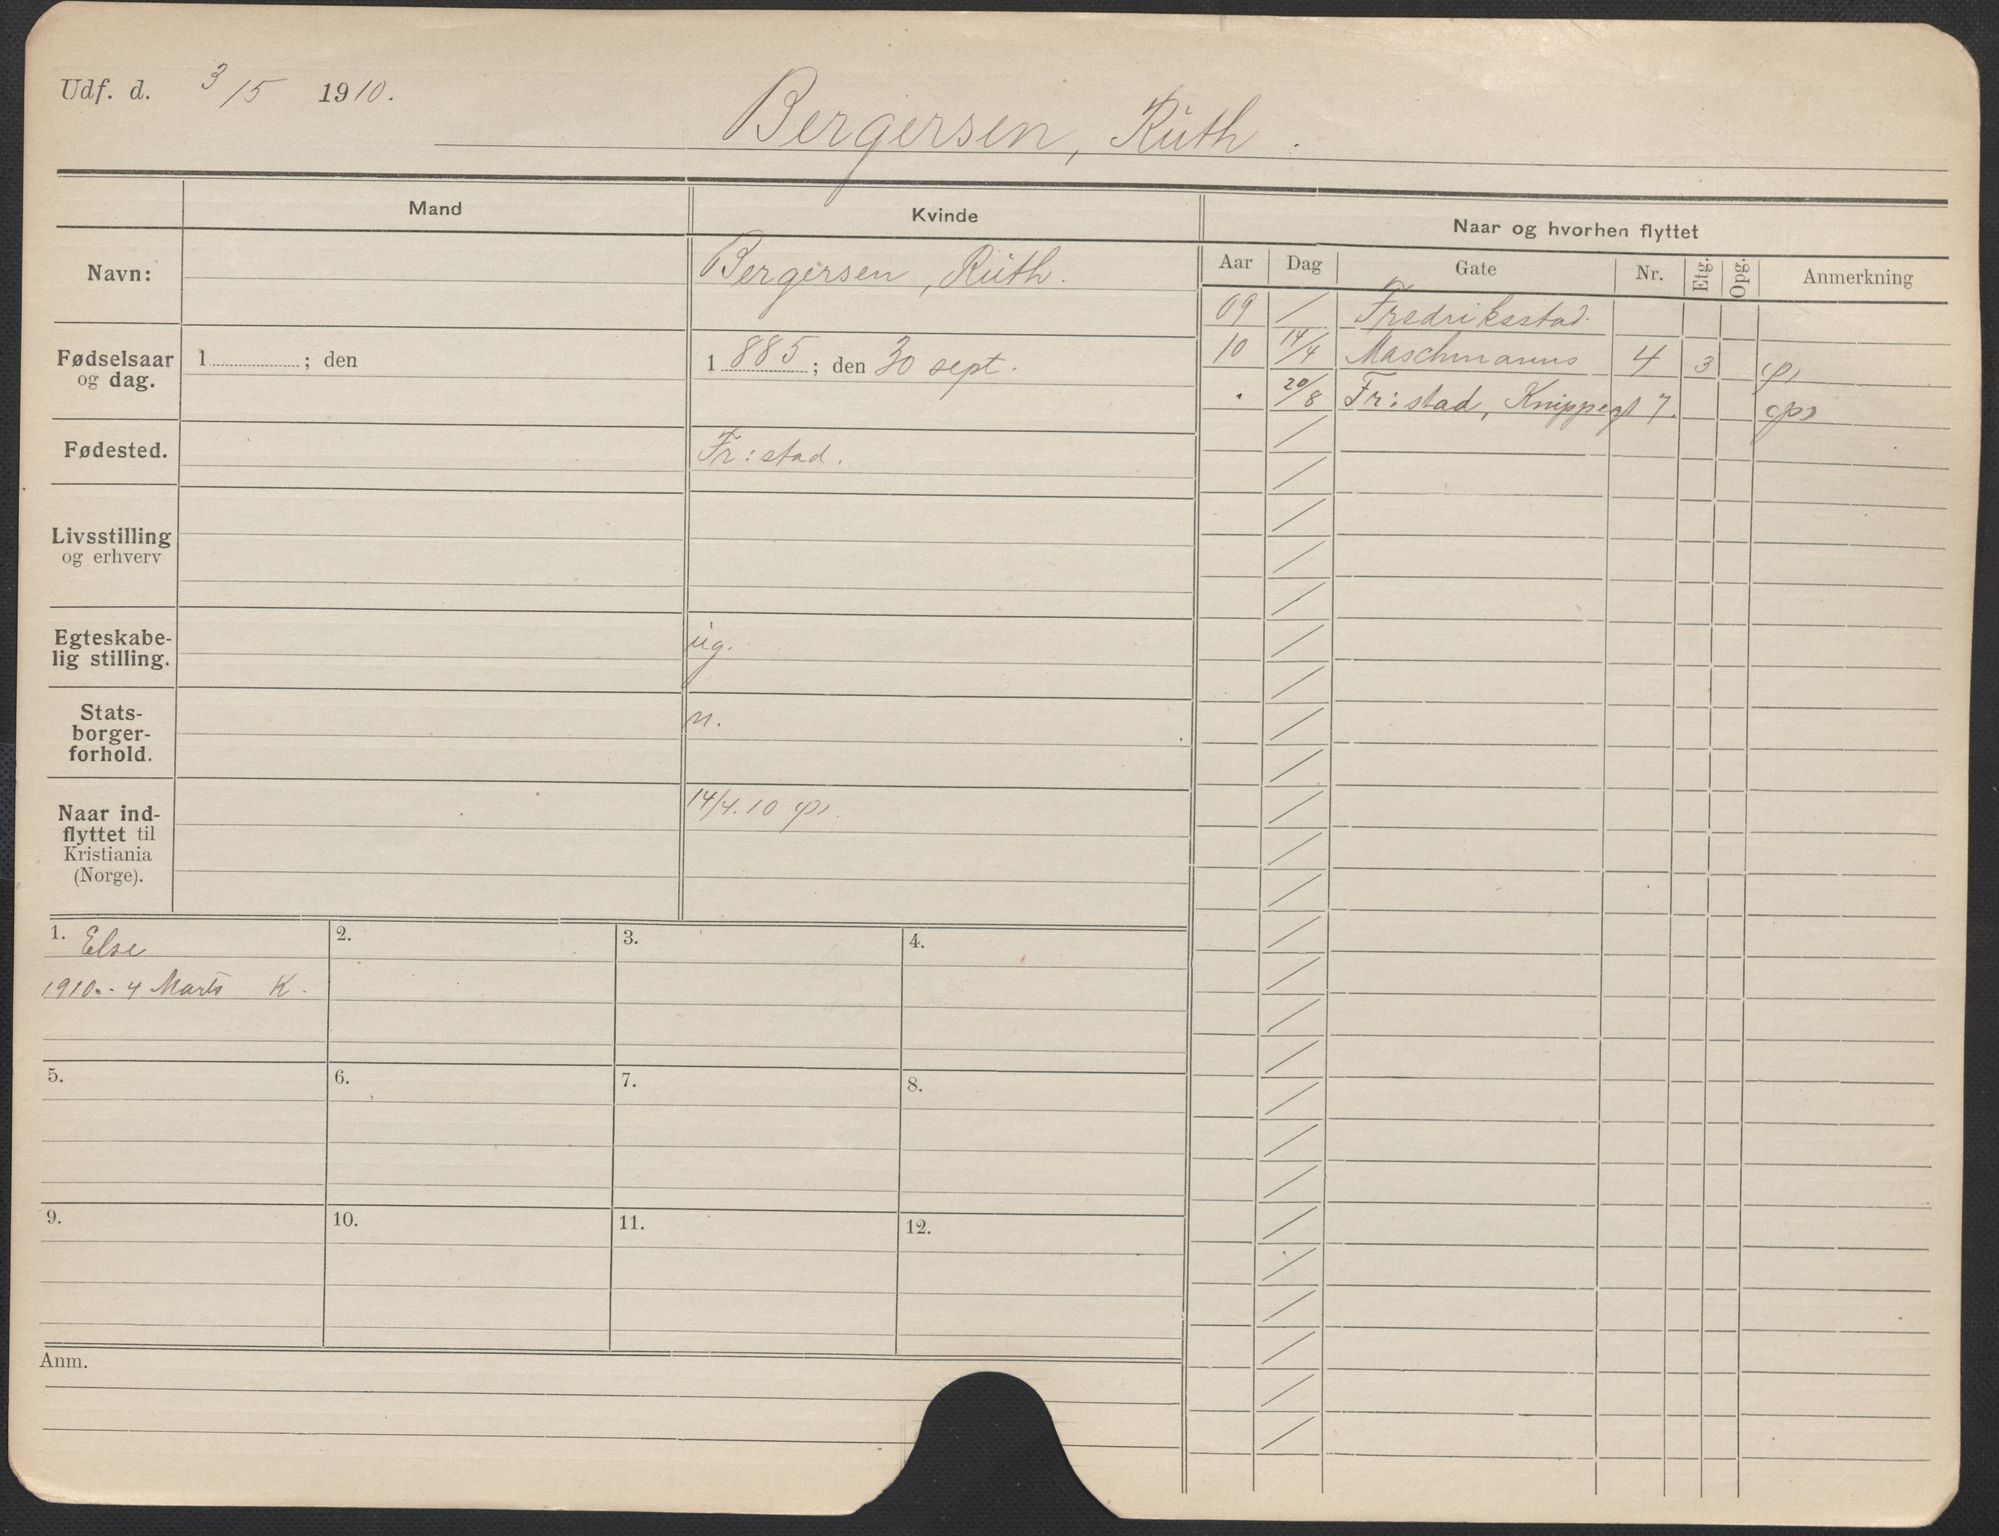 Udf. d. 3/5 1910.
Bergersen, Ruth.
Mand
Kvinde
Naar og hvorhen flyttet
Navn:
Bergersen, Ruth.
Aar Dag Gate Nr. Etg. Opg. Anmerkning
09 / Fredriksstad.
10 14/4 Maschmanns 4 3
Fødselsaar og dag.
1 ; den
1 885 ; den 30 sept.
" 20/8 Fr:stad, Knippegt 7.
Fødested.
Fr:stad.
Livsstilling
og erhverv
Egteskabe-
lig stilling.
ug.
Stats-
borger-
forhold.
n.
Naar ind-
flyttet til
Kristiania
(Norge).
14/4.10
1. Else
1910. - 4 Marts K.
2.
3.
4.
5.
6.
7.
8.
9.
10.
11.
12.
Anm.